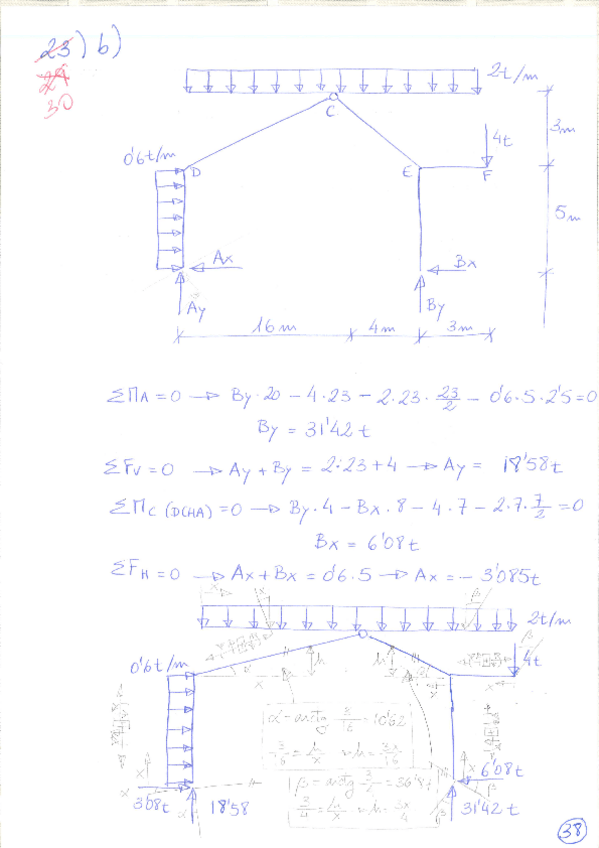 23) b)
24
30
2t/m
C
4t
3m
0'6t/m
D
E
F
5m
Ax
Bx
Ay
By
16m
4m
3m
ΣMA = 0 → By·20 - 4·23 - 2·23·23/2 - 0'6·5·2'5 = 0
By = 31'42 t
ΣFv = 0 → Ay + By = 2·23 + 4 → Ay = 18'58t
ΣMc (DCHA) = 0 → By·4 - Bx·8 - 4·7 - 2·7·7/2 = 0
Bx = 6'08t
ΣFH = 0 → Ax + Bx = 0'6·5 → Ax = - 3'085t
2t/m
4t
0'6t/m
α = arctg 3/16 = 10'62
3/16 = h/x → h = 3x/16
β = arctg 3/4 = 36'87
3/4 = h/x → h = 3x/4
6'08t
3'08t
18'58
31'42 t
38